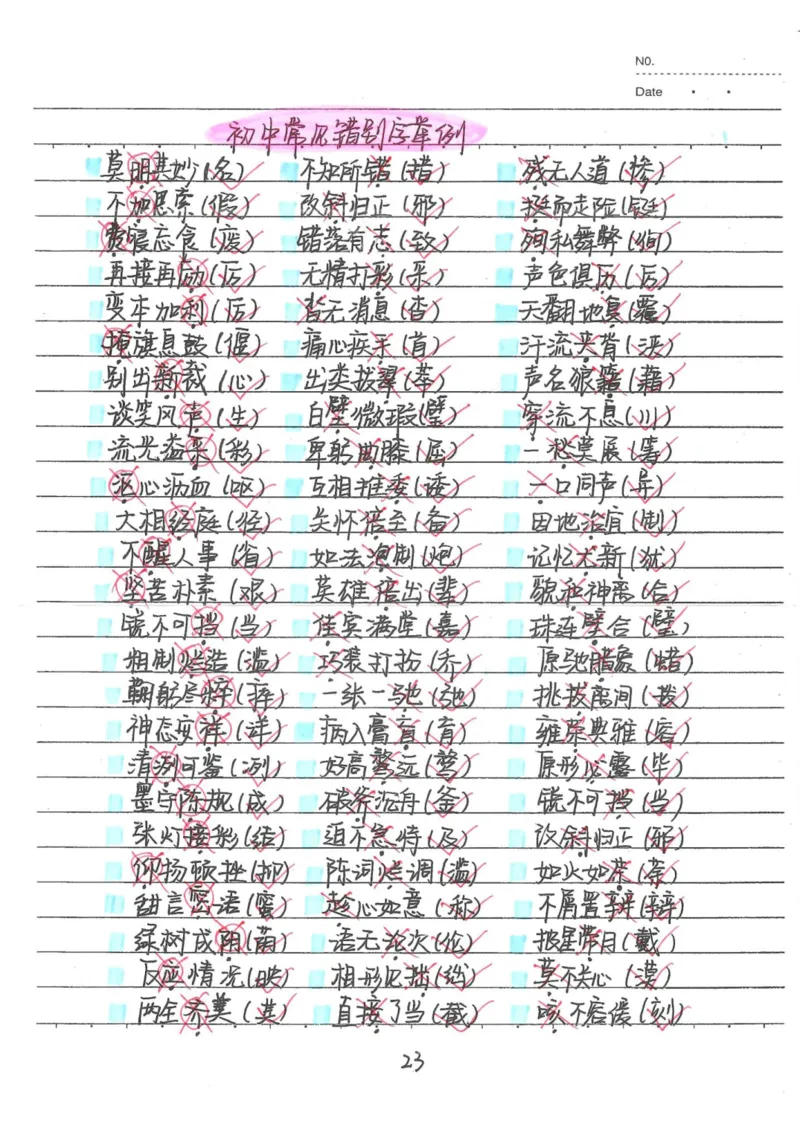 NO.
Date
初中常见错别字举例
莫明其妙(名) 不知所错(措) 残无人道(惨)
不加思索(假) 改斜归正(邪) 挺而走险(铤)
费寝忘食(废) 错落有志(致) 殉私舞弊(徇)
再接再励(厉) 无精打彩(采) 声色俱历(厉)
变本加利(厉) 皆无消息(杳) 天翻地复(覆)
掩旗息鼓(偃) 痛心疾手(首) 汗流夹背(浃)
别出新裁(心) 出类拔翠(萃) 声名狼籍(藉)
谈笑风声(生) 白壁微瑕(璧) 穿流不息(川)
流光溢采(彩) 卑躬曲膝(屈) 一愁莫展(筹)
沤心沥血(呕) 互相推委(诿) 一口同声(异)
大相经庭(径) 关怀倍至(备) 因地治宜(制)
不醒人事(省) 如法泡制(炮) 记忆尤新(犹)
坚苦朴素(艰) 英雄倍出(辈) 貌和神离(合)
锐不可挡(当) 佳宾满堂(嘉) 珠连壁合(璧)
粗制烂造(滥) 巧装打扮(乔) 原驰腊象(蜡)
鞠躬尽粹(瘁) 一张一驰(弛) 挑拔离间(拨)
神态安祥(详) 病入膏盲(肓) 雍荣典雅(容)
清洌可鉴(冽) 好高鹜远(骛) 原形必露(毕)
墨守陈规(成) 破斧沉舟(釜) 锐不可挡(当)
张灯接彩(结) 迫不急待(及) 改斜归正(邪)
仰扬顿挫(抑) 陈词烂调(滥) 如火如茶(荼)
甜言密语(蜜) 趁心如意(称) 不屑置辛(辩)
绿树成阴(荫) 语无论次(伦) 披星带月(戴)
反应情况(映) 相形见拙(绌) 莫不关心(漠)
两全齐美(其) 直接了当(截) 咳不容缓(刻)
23